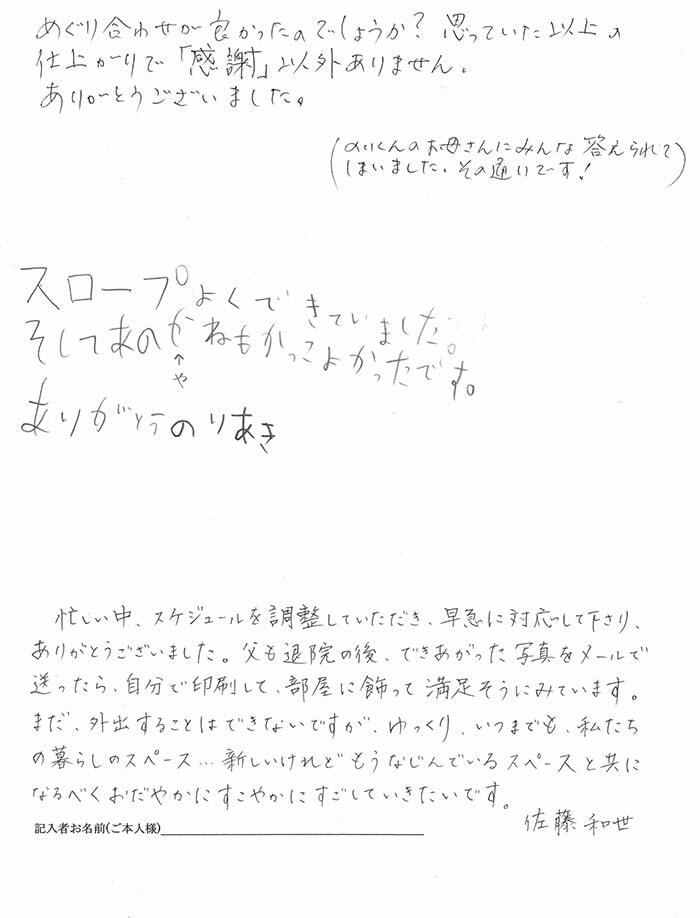 めぐり合わせが良かったのでしょうか？思っていた以上の
仕上がりで「感謝」以外ありません。
ありがとうございました。
くんのお母さんにみんな答えられて
しまいました。その通りです！
スロープよくできていました。
そしてあのかねもかっこよかったです。
↑
や
ありがとうのりあき
忙しい中、スケジュールを調整していただき、早急に対応して下さり、
ありがとうございました。父も退院の後、できあがった写真をメールで
送ったら、自分で印刷して、部屋に飾って満足そうにみています。
まだ、外出することはできないですが、ゆっくり、いつまでも、私たち
の暮らしのスペース…新しいけれどもうなじんでいるスペースと共に
なるべくおだやかにすこやかにすごしていきたいです。
佐藤和世
記入者お名前(ご本人様)